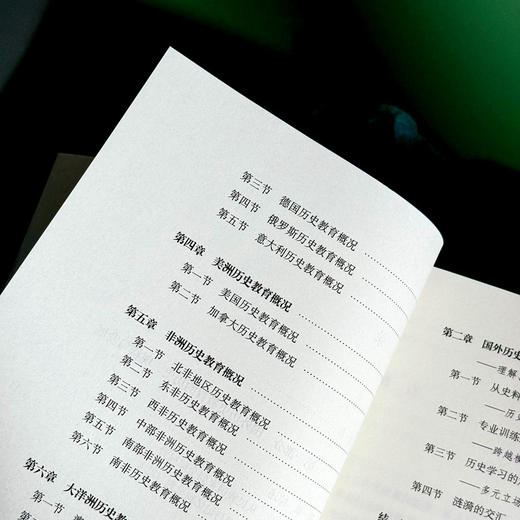 第三节 德国历史教育概况
第四节 俄罗斯历史教育概况
第五节 意大利历史教育概况
第四章 美洲历史教育概况
第一节 美国历史教育概况
第二节 加拿大历史教育概况
第五章 非洲历史教育概况
第一节 北非地区历史教育概况
第二节 东非历史教育概况
第三节 西非历史教育概况
第四节 中部非洲历史教育概况
第五节 南部非洲历史教育概况
第六节 南非历史教育概况
第六章 大洋洲历史教育概况
第一节
第二章 国外历史
——理解
第一节 从史料
——历
第二节 专业训练
——跨越
第三节 历史学习的
——多元立场
第四节 涟漪的交汇